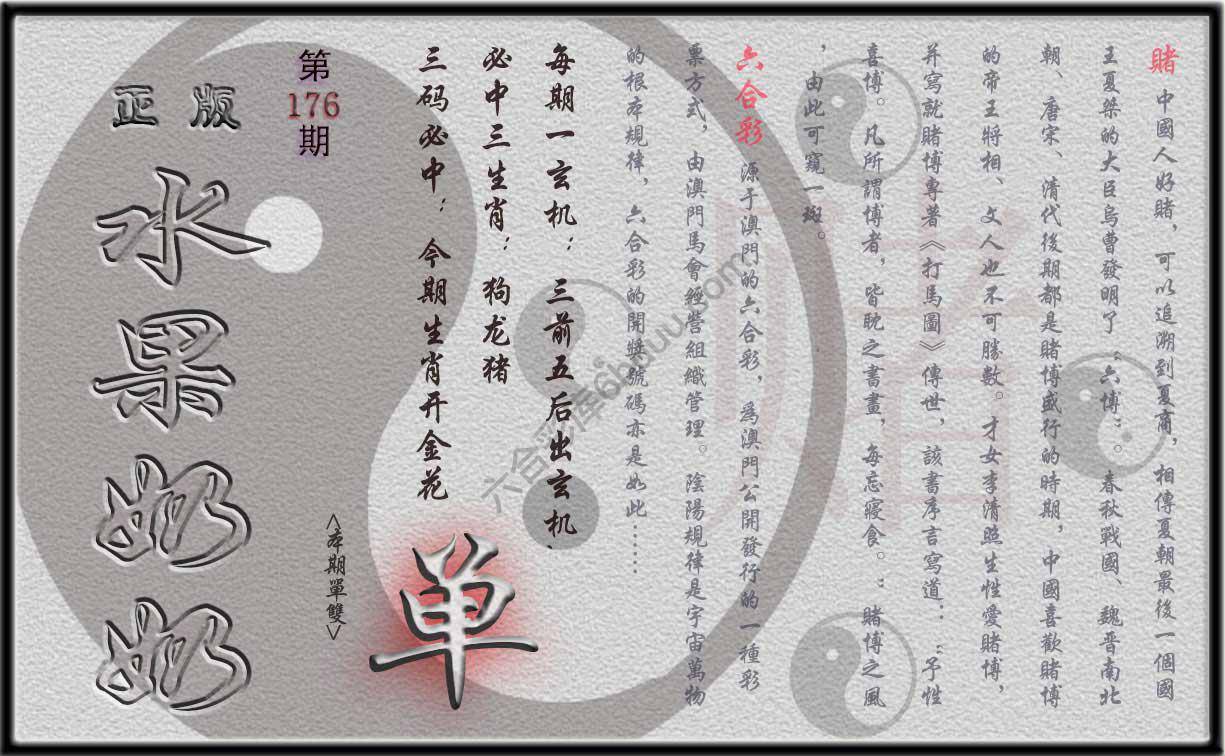 賭 中國人好賭，可以追溯到夏商，相傳夏朝最後一個國
王夏桀的大臣烏曹發明了“六博”。春秋戰國、魏晋南北
朝、唐宋、清代後期都是賭博盛行的時期，中國喜歡賭博
的帝王將相、文人也不可勝數。才女李清照生性愛賭博，
并寫就賭博專著《打馬圖》傳世，該書序言寫道：“予性
喜博。凡所謂博者，皆眈之書畫，每忘寢食。：賭博之風
，由此可窺一斑。
六合彩 源于澳門的六合彩，爲澳門公開發行的一種彩
票方式，由澳門馬會經營組織管理。陰陽規律是宇宙萬物
的根本規律，六合彩的開獎號碼亦是如此……
每期一玄机：三前五后出玄机，
必中三生肖：狗龙猪
三码必中：今期生肖开金花
第
176
期
<本期單雙>
单
正版
水果奶奶
賭
六合彩库6hduu.com